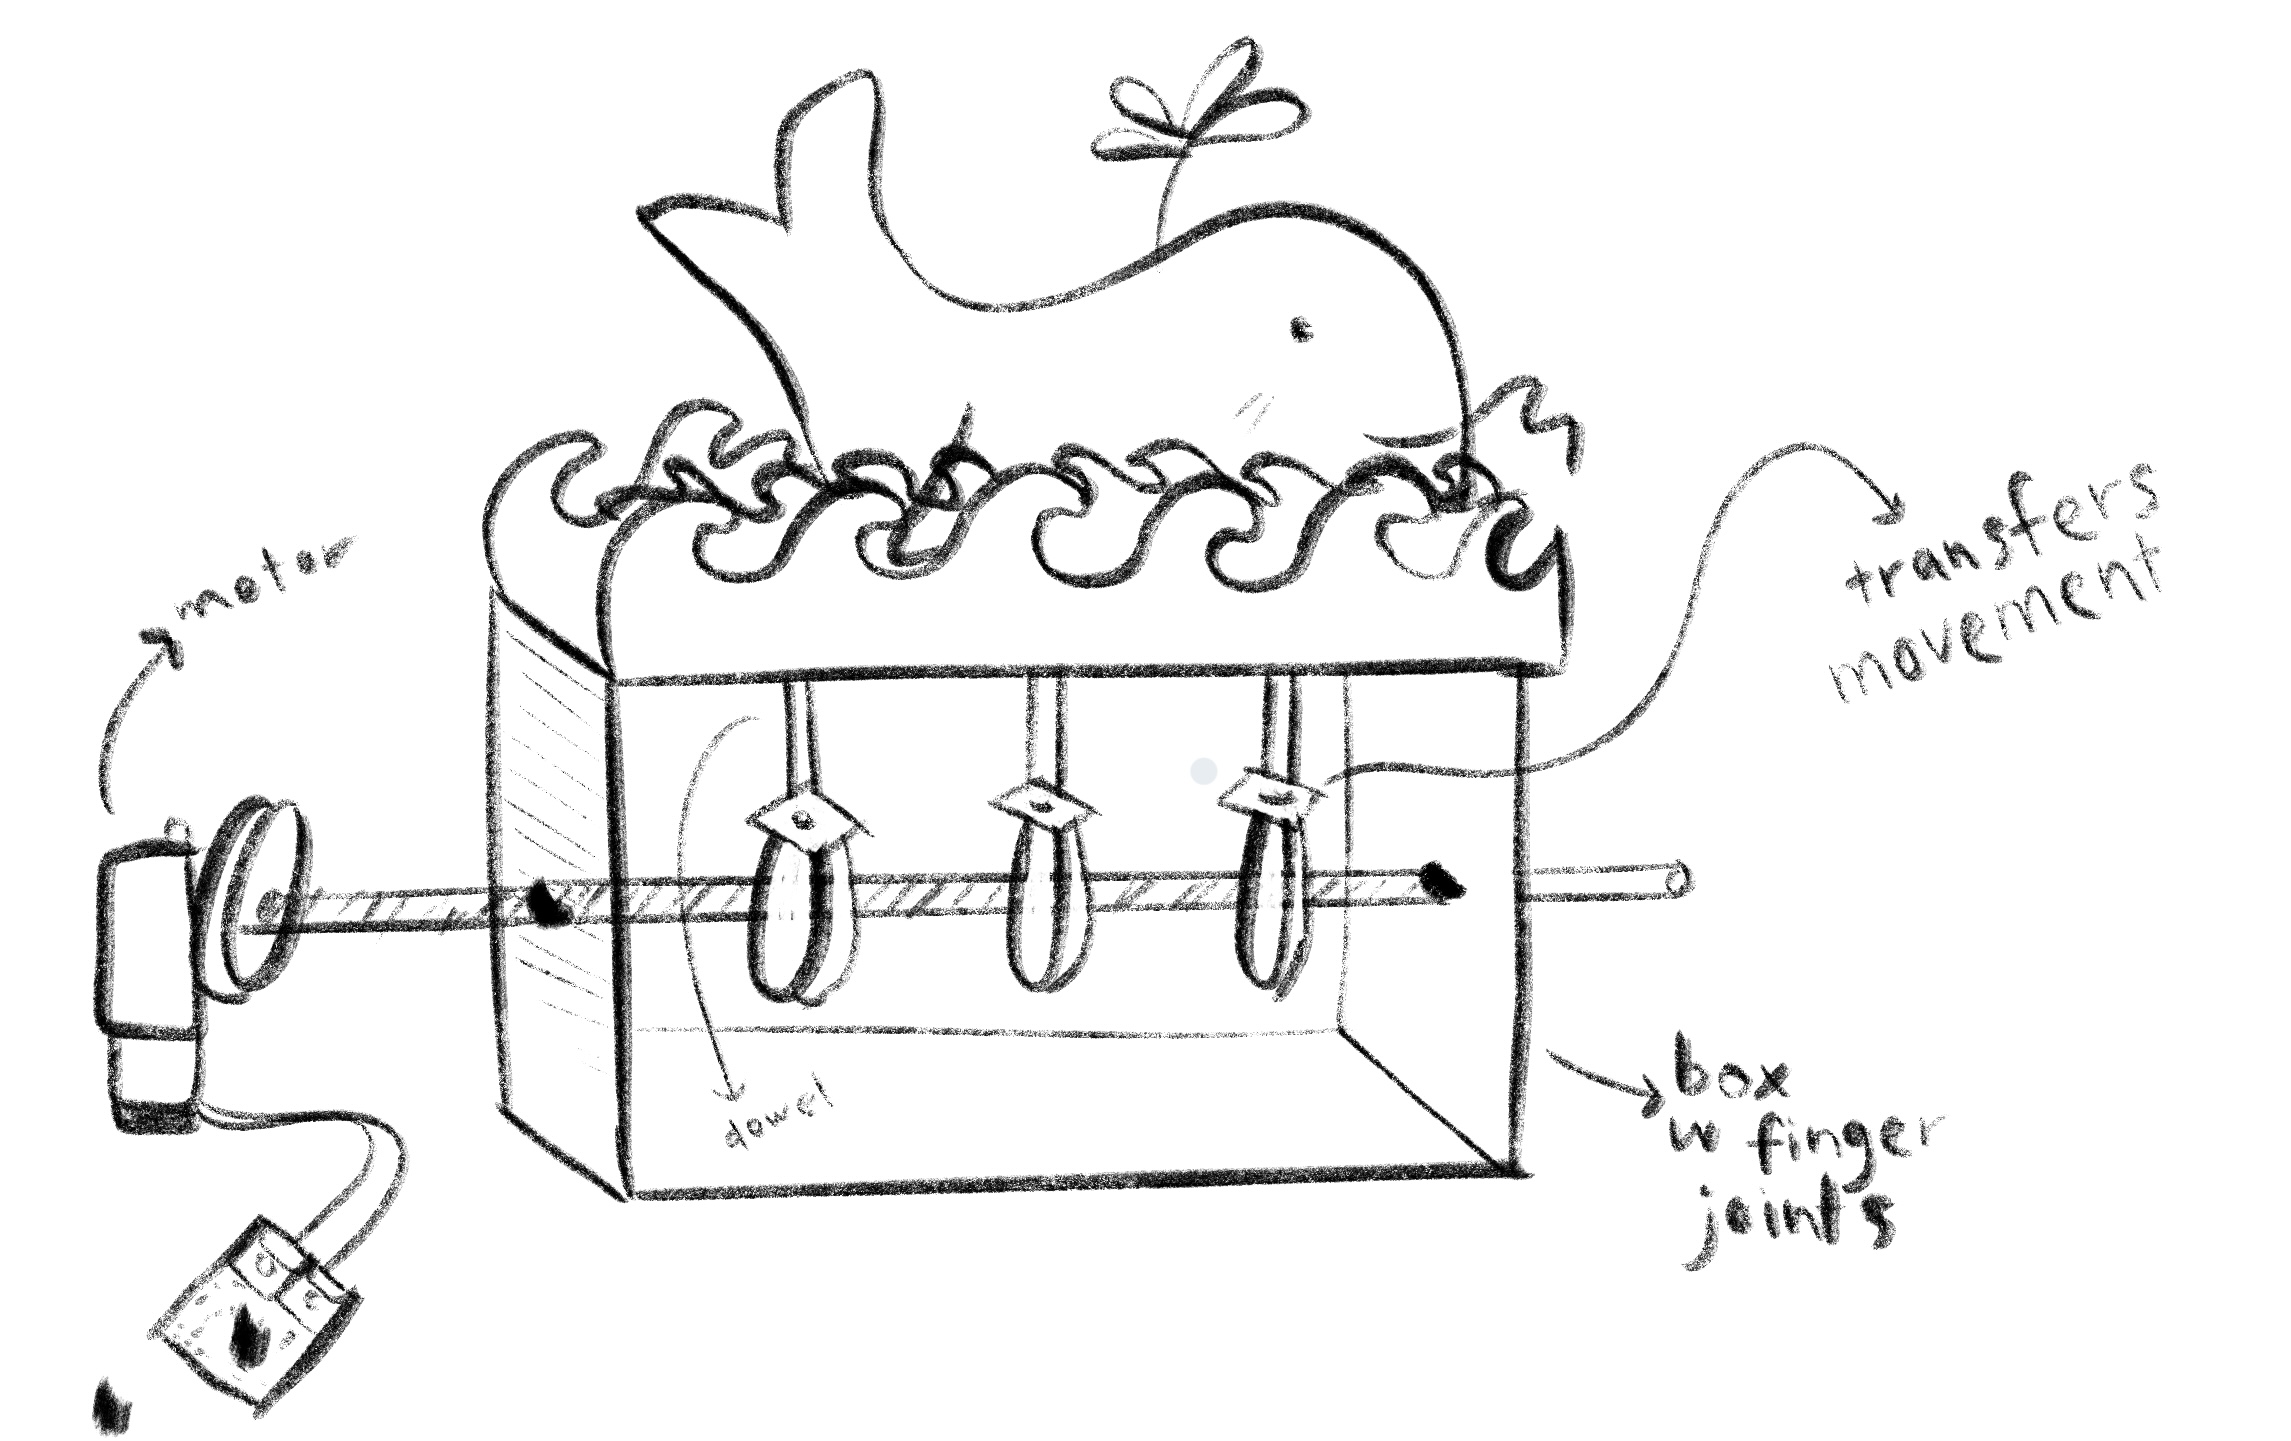 motor
transfers
movement
dowel
box
w finger
joints